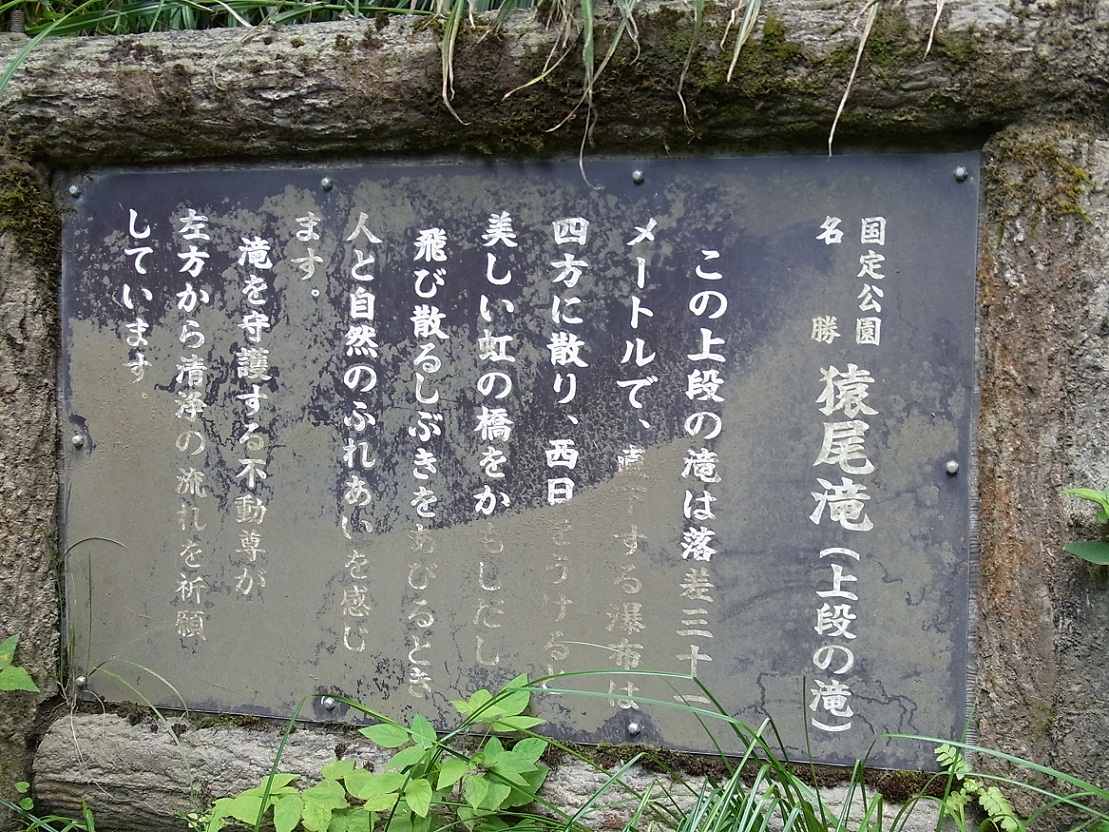 国定公園
名勝
猿尾滝(上段の滝)
この上段の滝は落差三十
メートルで、直下する瀑布は
四方に散り、西日をうけると
美しい虹の橋をかもしだし
飛び散るしぶきをあびるとき
人と自然のふれあいを感じ
ます。
滝を守護する不動尊が
左方から清浄の流れを祈願
しています。